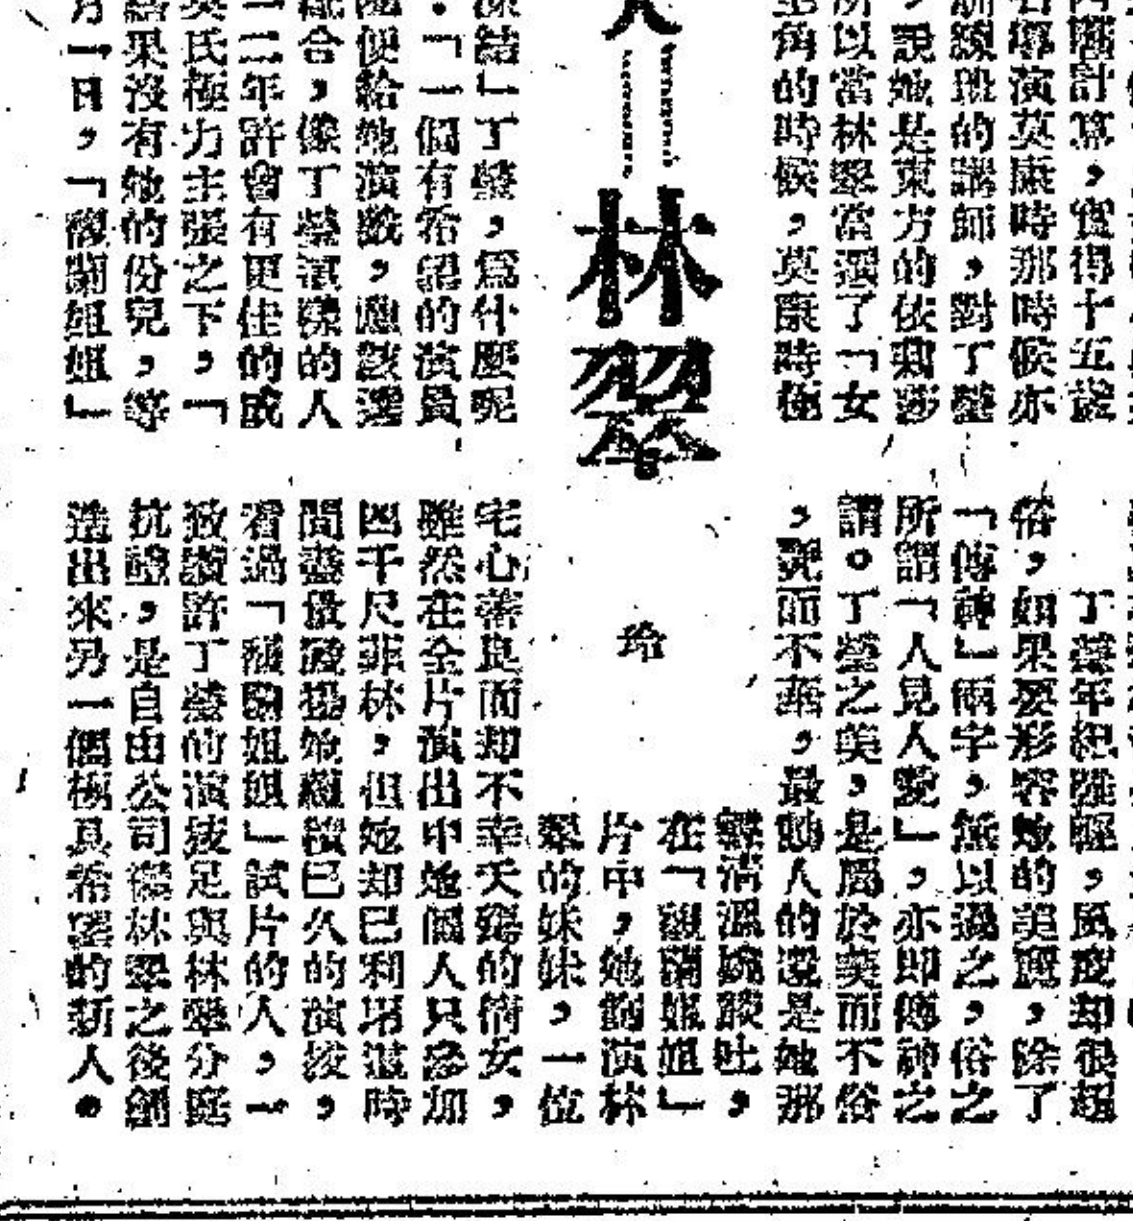 計算,實得十五歲
名導演莫康時那時候亦
訓練班的講師,對丁瑩
,說她是東方的依莉莎
所以當林翠當選了「女
主角的時候,莫康時極
人——林翠
玲
凍結」丁瑩,爲什麼呢
「一個有希望的演員
便給她演戲,應該選
配合,像丁瑩這樣的人
一二年許會有更佳的成
莫氏極力主張之下,「
結果沒有她的份兒,等
月一日,「蘭姐姐」
丁瑩年紀雖輕,風度却很超
俗,如果要形容她的美麗,除了
「傳神」兩字,無以過之,俗之
所謂「人見人愛」,亦即傳神之
謂。丁瑩之美,是屬於美而不俗
,艷而不華,最動人的還是她那
輕清溫婉談吐,
在「蘭姐姐」
片中,她飾演林
翠的妹妹,一位
宅心善良而却不幸夭殤的倩女,
雖然在全片演出中她個人只參加
四千尺菲林,但她却已利用這時
間盡量發揚她蘊積已久的演技,
看過「蘭姐姐」試片的人,一
致讚許丁瑩的演技足與林翠分庭
抗禮,是自由公司繼林翠之後創
造出來另一個極具希望的新人。